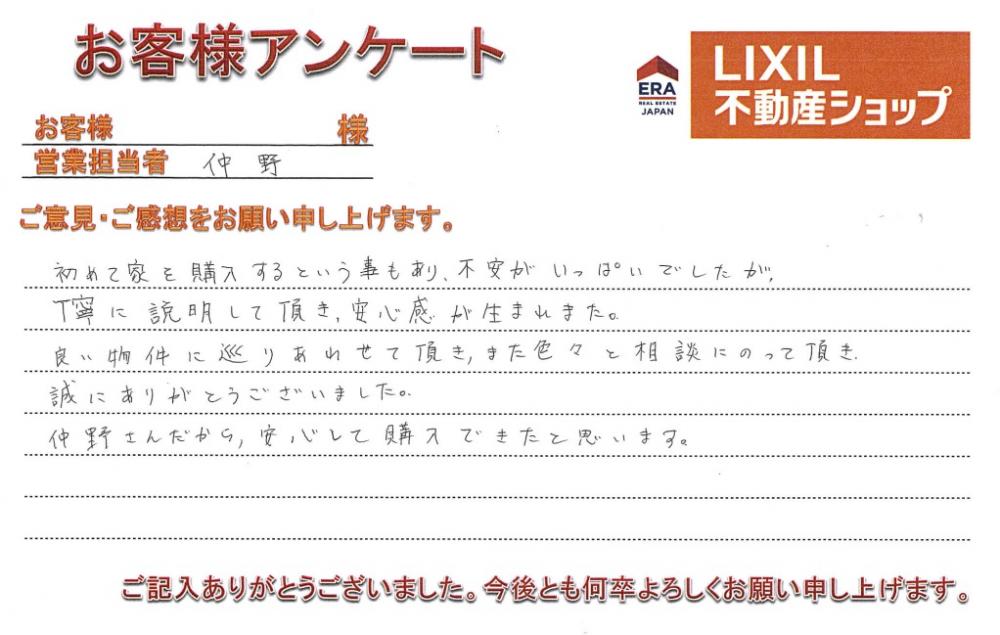 お客様アンケート
ERA
REAL ESTATE
JAPAN
LIXIL
不動産ショップ
お客様 様
営業担当者 仲野
ご意見・ご感想をお願い申し上げます。
初めて家を購入するという事もあり、不安がいっぱいでしたが、
丁寧に説明して頂き、安心感が生まれました。
良い物件に巡りあわせて頂き、また色々と相談にのって頂き、
誠にありがとうございました。
仲野さんだから、安心して購入できたと思います。
ご記入ありがとうございました。今後とも何卒よろしくお願い申し上げます。